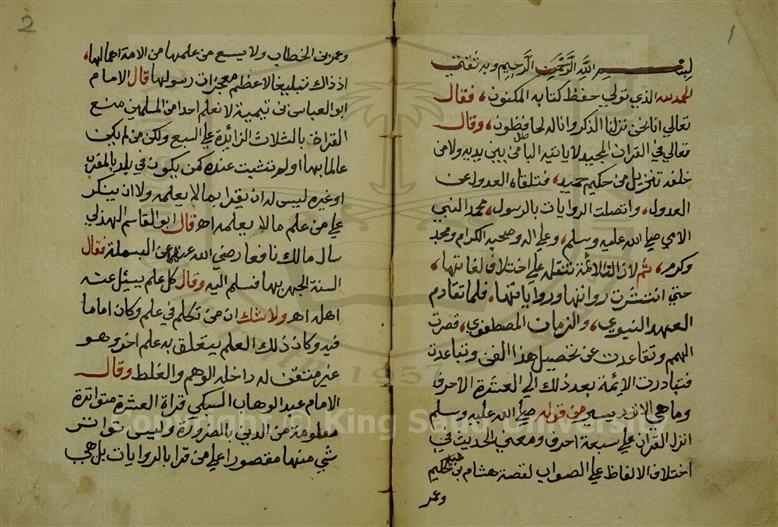 1
بسم الله الرحمن الرحيم وبه ثقتي
الحمد لله الذي تولي حفظ كتابه المكنون، فقال
تعالي انا نحن نزلنا الذكر وانا له لحافظون، وقال
تعالي في القران المجيد لا ياتيه الباطل من بين يديه ولا من
خلفه تنزيل من حكيم حميد، فتلقاه العدول عن
العدول، واتصلت الروايات بالرسول، محمد النبي
الامي صلي الله عليه وسلم، وعلي اله وصحبه الكرام ومجد
وكرم، ثم لازالت الائمة تنقله علي اختلاف لغاتها،
حتي انتشرت رواتها ورواياتها، فلما تقادم
العهد النبوي، والزمان المصطفوي، قصرت
الهمم وتقاعدت عن تحصيل هذا الفن وتباعدت
فتبادرت الائمة بعد ذلك الي العشرة الاحرف
وما هي الا نزر يسير من قوله صلي الله عليه وسلم
انزل القران علي سبعة احرف ومعني الحديث في
اختلاف الالفاظ علي الصواب لقصة هشام بن حكيم
وعمر
2
وعمر بن الخطاب ولا يسع من علمها من الامة اهمالها،
اذ ذاك تبليغا لاعظم معجزات رسولها قال الامام
ابو العباس بن تيمية لا نعلم احدا من المسلمين منع
القراة بالثلاث الزائدة علي السبع ولكن من لم يكن
عالما بها او لم تثبت عنده كمن يكون في بلد بالمغرب
او غيره ليس له ان يقرا بما لا يعلمه ولا ان ينكر
علي من علم ما لا يعلمه اه قال ابو القاسم الهذلي
سال مالك نافعا رضي الله عنهما عن البسملة فقال
السنة الجهر بها فسلم اليه وقال كل علم يسئل عنه
اهله اه ولا شك ان من تكلم في علم وكان اماما
فيه وكان ذلك العلم يتعلق به علم اخر وهو
غير متقن له داخله الوهم والغلط وقال
الامام عبد الوهاب السبكي قراة العشرة متواترة
معلومة من الدين بالضرورة وليس تواتر
شي منها مقصورا علي من قرا بالروايات بل هي
Copyright © King Saud University
1957